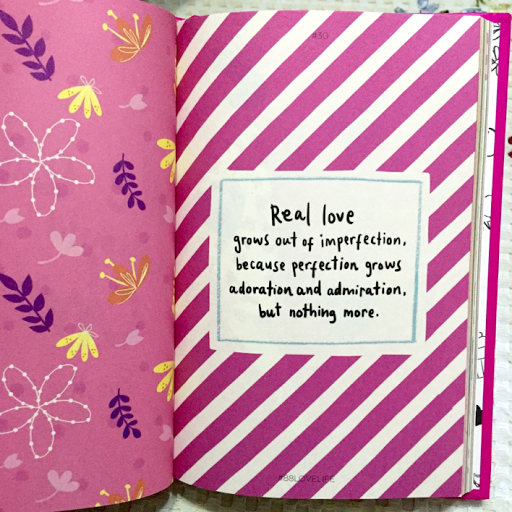 #30
Real love
grows out of imperfection,
because perfection grows
adoration and admiration,
but nothing more.
#88LOVELIFE